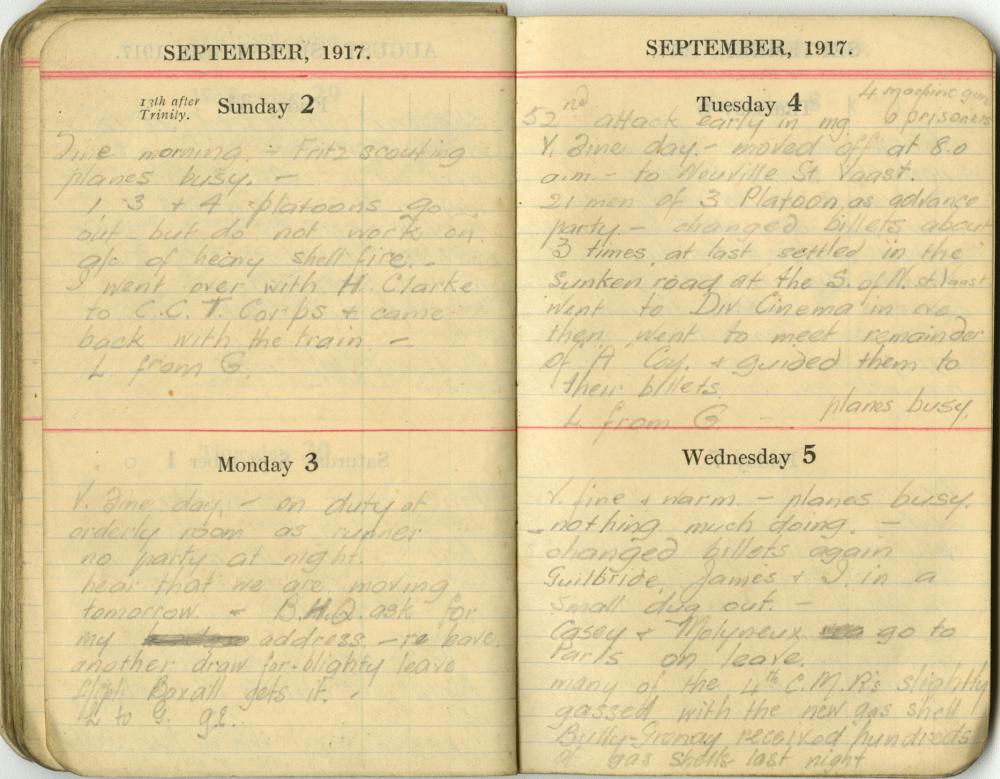 SEPTEMBER, 1917.
13th after
Trinity.
Sunday 2
Fine morning. - Fritz scouting
planes busy. -
1, 3 + 4 platoons go
out but do not work on
a/c of heavy shell fire. -
I went over with H Clarke
to C.C.T. Corps + came
back with the train -
L from G.
Monday 3
V. Fine day. - on duty at
orderly room as runner
no party at night.
hear that we are moving
tomorrow. - B.H.Q. ask for
my address - re
another draw for blighty leave
Boxall gets it. -
L to G. g.E.
SEPTEMBER, 1917.
Tuesday 4
4 machine gun
6 prisoners
52nd attack early in mg.
V. Fine day. - moved off at 8.0
a.m. - to Neuville St. Vaast.
21 men of 3 Platoon as advance
party. - changed billets about
3 times, at last settled in the
sunken road at the S. of N. st. Vaast
went to Div Cinema in eve
then went to meet remainder
of A Coy. + guided them to
their billets.
planes busy.
L from G
Wednesday 5
V. fine + warm. - planes busy.
- nothing much doing. -
changed billets again
Guilbride, James + I. in a
small dug out. -
Casey + Molyneux go to
Paris on leave.
many of the 4th C.M.R's slightly
gassed with the new gas shell
Bully-Grenay received hundreds
of gas shells last night